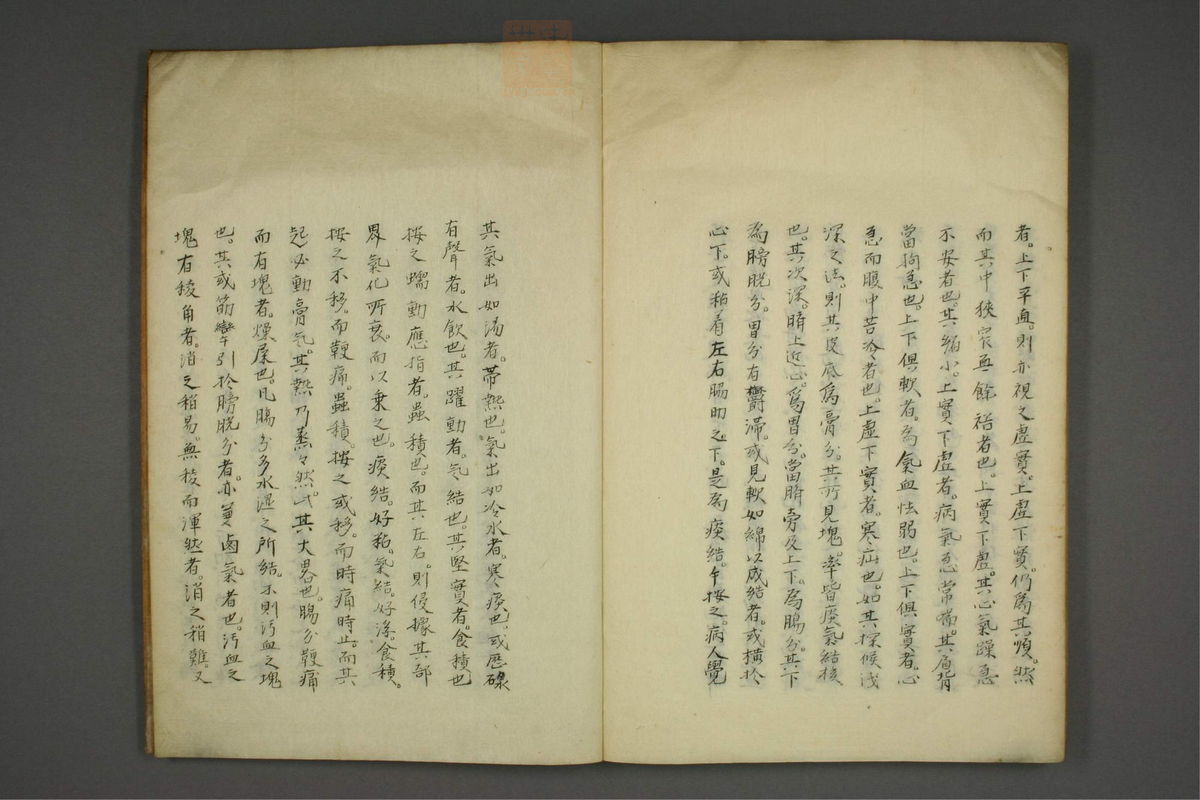 者。上下平直。則亦視之虛實。上虛下實。仍爲其順。然
而其中狹窄無餘裕者也。上實下虛。其心氣躁急
不安者也。其縮小。上實下虛者。病氣急常喘。其肩背
當拘急也。上下俱軟者。爲氣血怯弱也。上下俱實者。心
急而腹中苦冷者也。上虛下實者。寒疝也。如其探候淺
深之法。則其皮底爲膏分。其所見塊。率皆痰氣結核
也。其次深。臍上近心。爲胃分。當臍旁及上下。爲腸分。其下
爲膀胱分。胃分有鬱滯。或見軟如綿以成結者。或橫於
心下。或粘着左右脇肋之下。是爲痰結。乍按之。病人覺
其氣出如湯者。帶熱也。氣出如冷水者。寒痰也。或歷碌
有聲者。水飲也。其躍動者。氣結也。其堅實者。食積也
按之蠕動應指者。蟲積也。而其左右。則侵據其部
界。氣化所衰。而以乘之也。痰結。好粘。氣結。好浮。食積。
按之不移。而鞕痛。蟲積。按之或移。而時痛時止。而其
起必動膏気。其熱乃蒸々然。此其大畧也。腸分鞕痛
而有塊者。燥屎也。凡腸分多水湿之所結。不則汚血之塊
也。其或筋攣引於膀胱分者。亦鹵氣者也。汚血之
塊有稜角者。消之稍易。無稜而渾然者。消之稍難。又